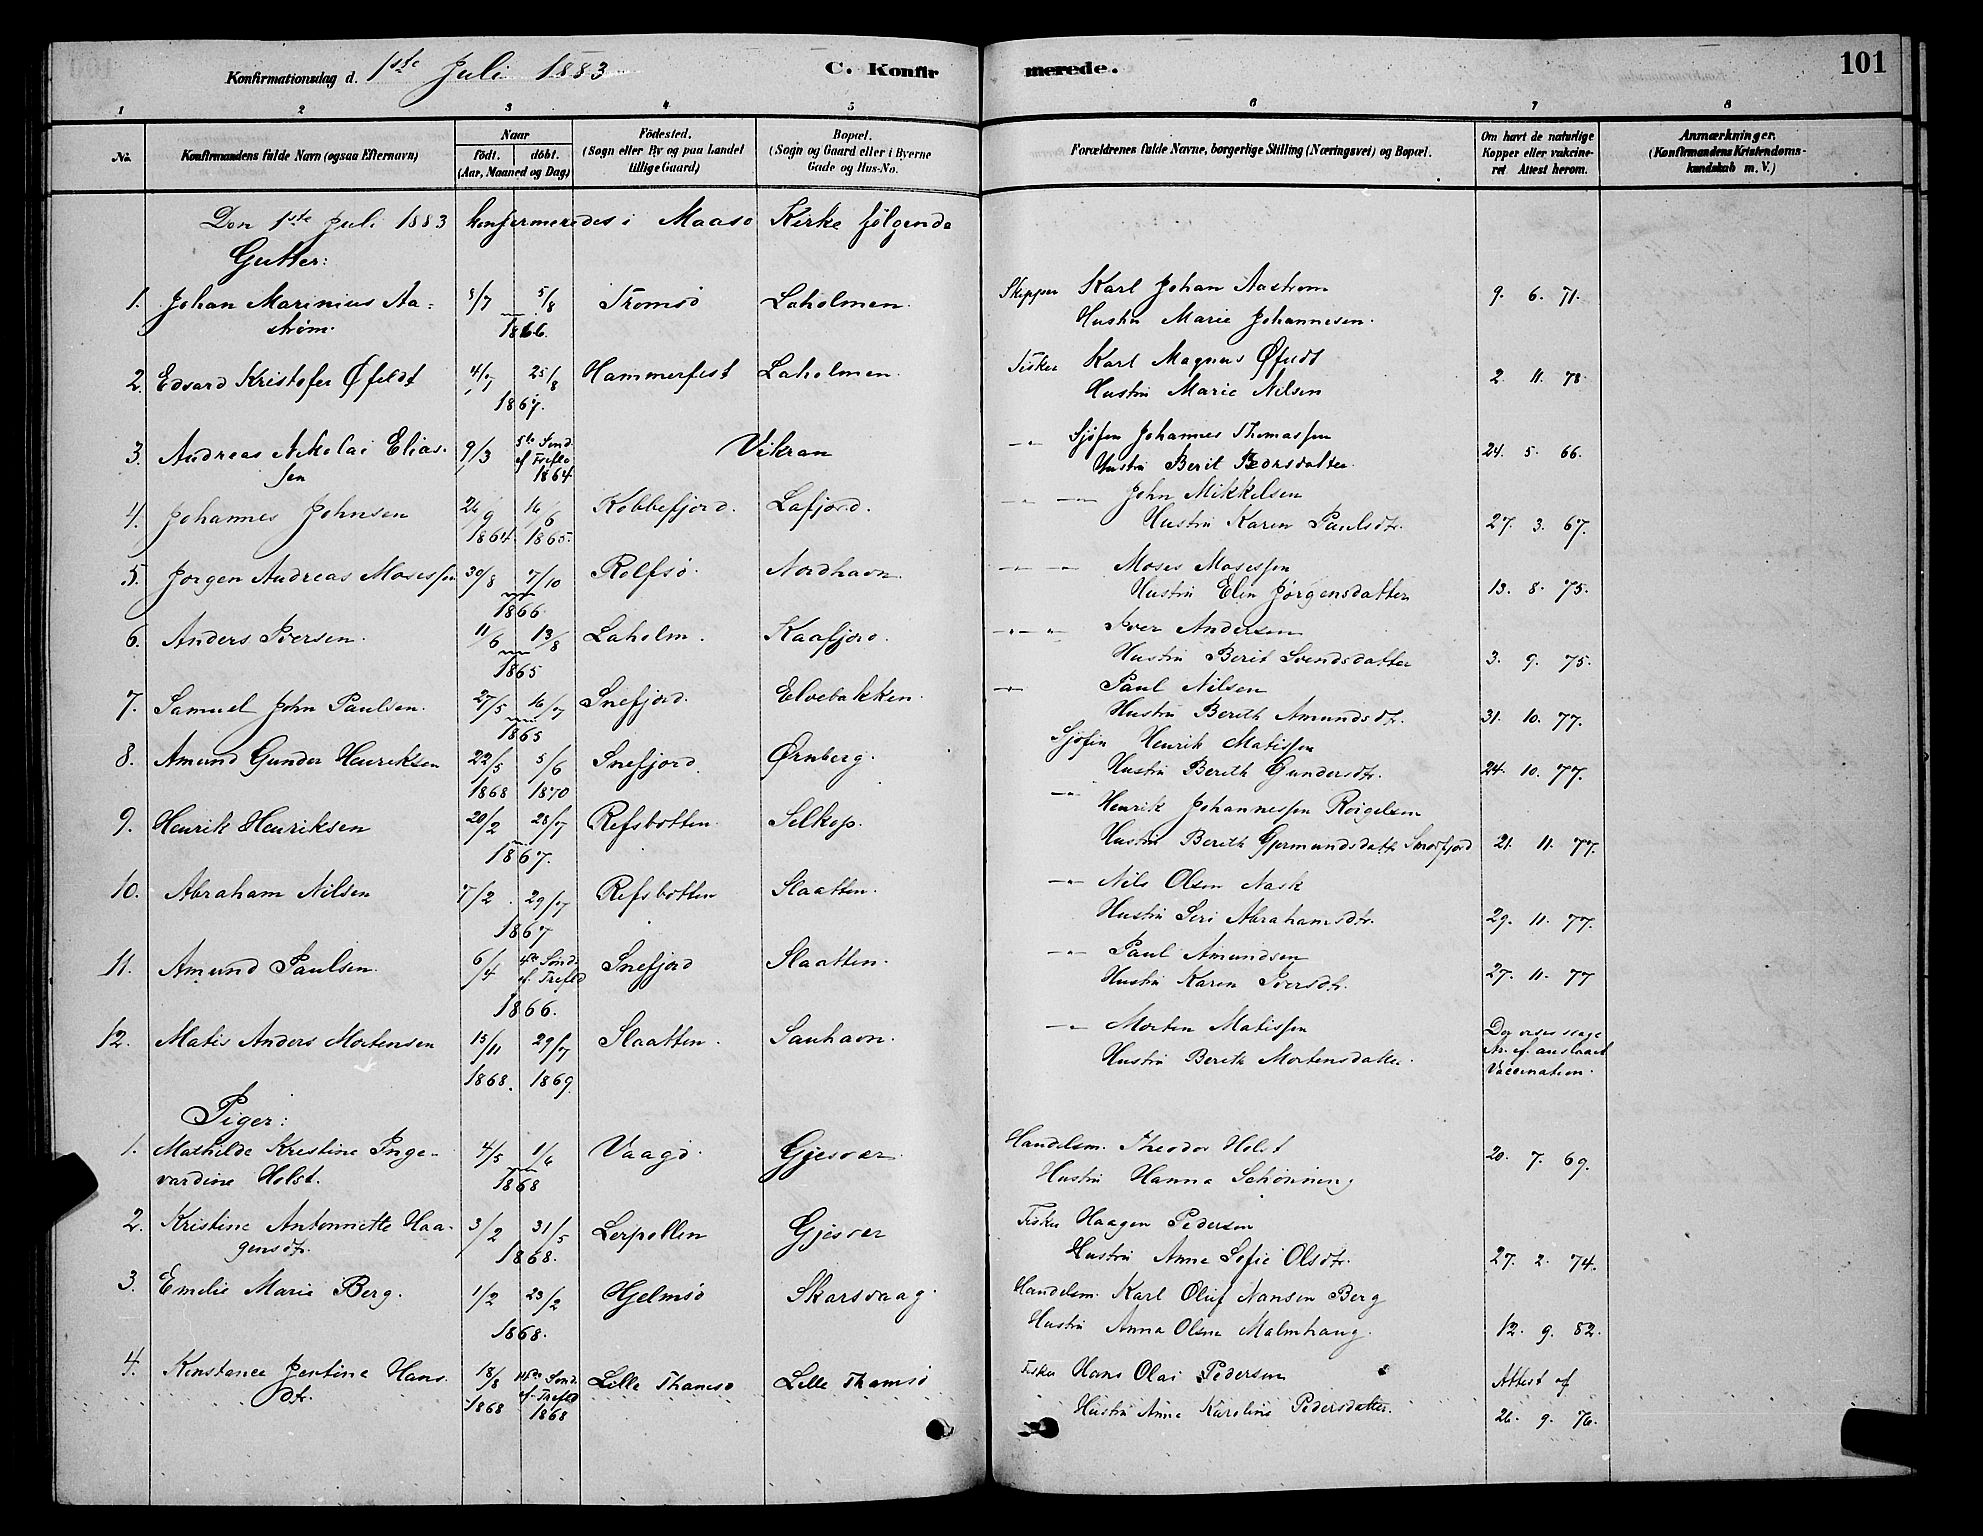 Konfirmationsdag d. 1ste Juli 1883 C. Konfir merede. 101
1 2 3 4 5 6 7 8
No. Konfirmandens fulde Navn (ogsaa Efternavn) Naar født. døbt. (Aar, Maaned og Dag) Fødested. (Sogn eller By og paa Landet tillige Gaard) Bopæl. (Sogn og Gaard eller i Byerne Gade og Hus-No. Forældrenes fulde Navne, borgerlige Stilling (Næringsvei) og Bopæl. Om havt de naturlige Kopper eller vakcineret Attest herom. Anmærkninger. (Konfirmandens Kristendomskundskab m. V.)
Den 1ste Juli 1883 konfirmeredes i Maasø Kirke følgende
Gutter:
1. Johan Marinius Aa- 5/7 5/8 Tromsø Laholmen. Skipper Karl Johan Aastrøm 9. 6. 71.
strøm. 1866. Hustru Marie Johannesen.
2. Edvard Kristofer Øfeldt 4/7 25/8 Hammerfest Laholmen. Fisker Karl Magnus Øfeldt 2. 11. 78.
1867. Hustru Marie Nilsen
3. Andreas Nikolai Elias- 9/3 5te Sønd. Vikran —"— Sjøfin Johannes Thomassen 24. 5. 66.
sen ef. Trefld 1864 Hustru Berit Pedersdatter
4. Johannes Johnsen 26/9 16/6 Kobbefjord. Lafjord. —"— John Mikkelsen
1864. 1865. Hustru Karen Paulsdtr. 27. 3. 67.
5. Jørgen Andreas Mosessen 30/8 7/10 Rolfsø. Nordhavn —"— Moses Mosessen
1866 Hustru Elen Jørgensdatter 13. 8. 75.
6. Anders Iversen. 11/6 13/8 Laholm. Kaafjord. —"— Iver Andersen
1865 Hustru Berit Svendsdatter 3. 9. 75.
7. Samuel John Paulsen. 27/5 16/7 Snefjord. Elvebakken. —"— Paul Nilsen
1865 Hustru Berith Amundsdtr. 31. 10. 77.
8. Amund Gunder Henriksen 22/5 5/6 Snefjord Ørnberg. Sjøfin Henrik Matissen
1868 1870 Hustru Berith Gundersdtr. 24. 10. 77.
9. Henrik Henriksen 20/2 28/7 Refsbotten. Selkop. —"— Henrik Johannessen Roigelsen
1867. Hustru Berith Gjermundsdatt. Snefjord 21. 11. 77.
10. Abraham Nilsen 7/2. 29/7 Refsbotten Slaatten. —"— Nils Olsen Nask
1867 Hustru Seri Abrahamsdtr. 29. 11. 77.
11. Amund Paulsen. 6/4 4de Sønd. Snefjord Slaatten. —"— Paul Amundsen
ef. Trefld 1866. Hustru Karen Iversdtr. 27. 11. 77
12. Matis Anders Mortensen 15/11 29/7 Slaatten. Sauhavn. —"— Morten Matissen
1868. 1869. Hustru Berith Mortensdatter. Vaccination.
Piger:
1. Mathilde Kristine Inge- 4/5 1/6 Vaagø. Gjesvær. Handelsm. Theodor Holst 20. 7. 69.
vardine Holst. 1868 Hustru Hanna Schønning
2. Kristine Antonnette Haa- 3/2 31/5 Lerpollen Gjesvær Fisker Haagen Pedersen
gensdtr. 1868. Hustru Anne Sofie Olsdtr. 27. 2. 74.
3. Emelie Marie Berg. 1/2 23/2 Hjelmsø Skarsvaag. Handelsm. Karl Oluf Nansen Berg
1868. Hustru Anna Olsne Malmhaug. 12. 9. 82.
4. Konstance Jentine Hans 18/8 Sønd. Lille Thamsø Lille Thamsø Fisker Hans Olai Pedersen Attest af
dtr. 1868 ef. Trefld 1868 Hustru Anne Karoline Pedersdatter. 26. 9. 76.